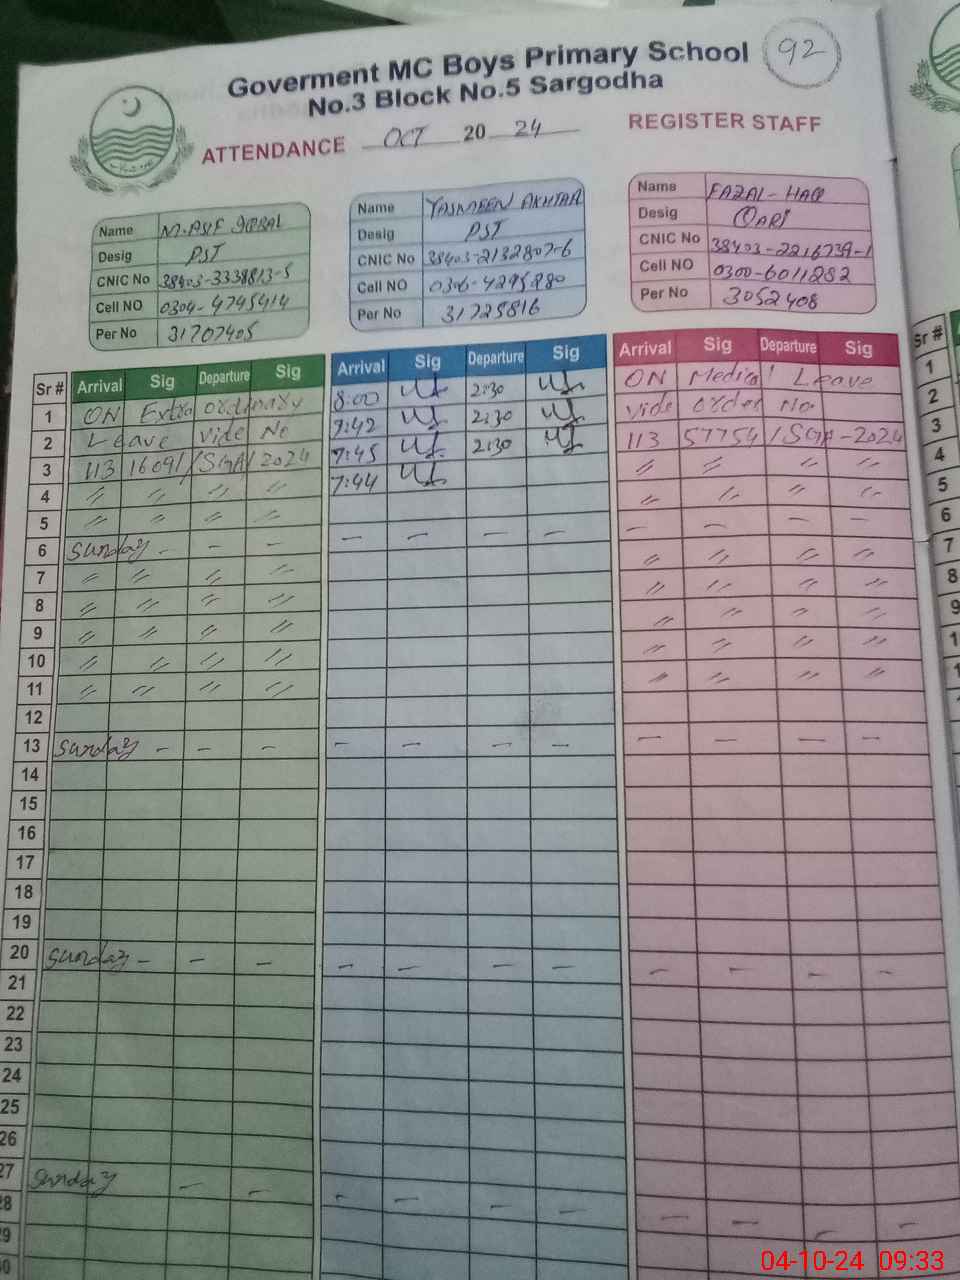 Goverment MC Boys Primary School
92
No.3 Block No.5 Sargodha
ATTENDANCE OCT 2024 REGISTER STAFF
Name M. ASIF IQBAL
Desig PST
CNIC No 38403-3338813-5
Cell NO 0304-4745414
Per No 31707405
Name YASMEEN AKHTAR
Desig PST
CNIC No 38403-2132807-6
Cell NO 0306-4295280
Per No 31725816
Name FAZAL-HAQ
Desig QARI
CNIC No 38403-2216739-1
Cell NO 0300-6011282
Per No 3052408
Sr # Arrival Sig Departure Sig Arrival Sig Departure Sig Arrival Sig Departure Sig Sr #
1 ON Extra ordinary 8:00 2:30 ON Medical Leave 1
2 Leave vide No 7:42 2:30 vide order No 2
3 113 16091/SGA/2024 7:45 2:30 113 57754/SGA-2024 3
4 〃 〃 〃 〃 7:44 〃 〃 〃 〃 4
5 〃 〃 〃 〃 〃 〃 〃 〃 5
6 Sunday - - - - - - - - - - - 6
7 〃 〃 〃 〃 〃 〃 〃 〃 7
8 〃 〃 〃 〃 〃 〃 〃 〃 8
9 〃 〃 〃 〃 〃 〃 〃 〃 9
10 〃 〃 〃 〃 〃 〃 〃 〃
11 〃 〃 〃 〃 〃 〃 〃 〃
12
13 Sunday - - - - - - - - - - -
14
15
16
17
18
19
20 Sunday - - - - - - - - - - -
21
22
23
24
25
26
27 Sunday - - - - - - - - - -
28
29
04-10-24 09:33